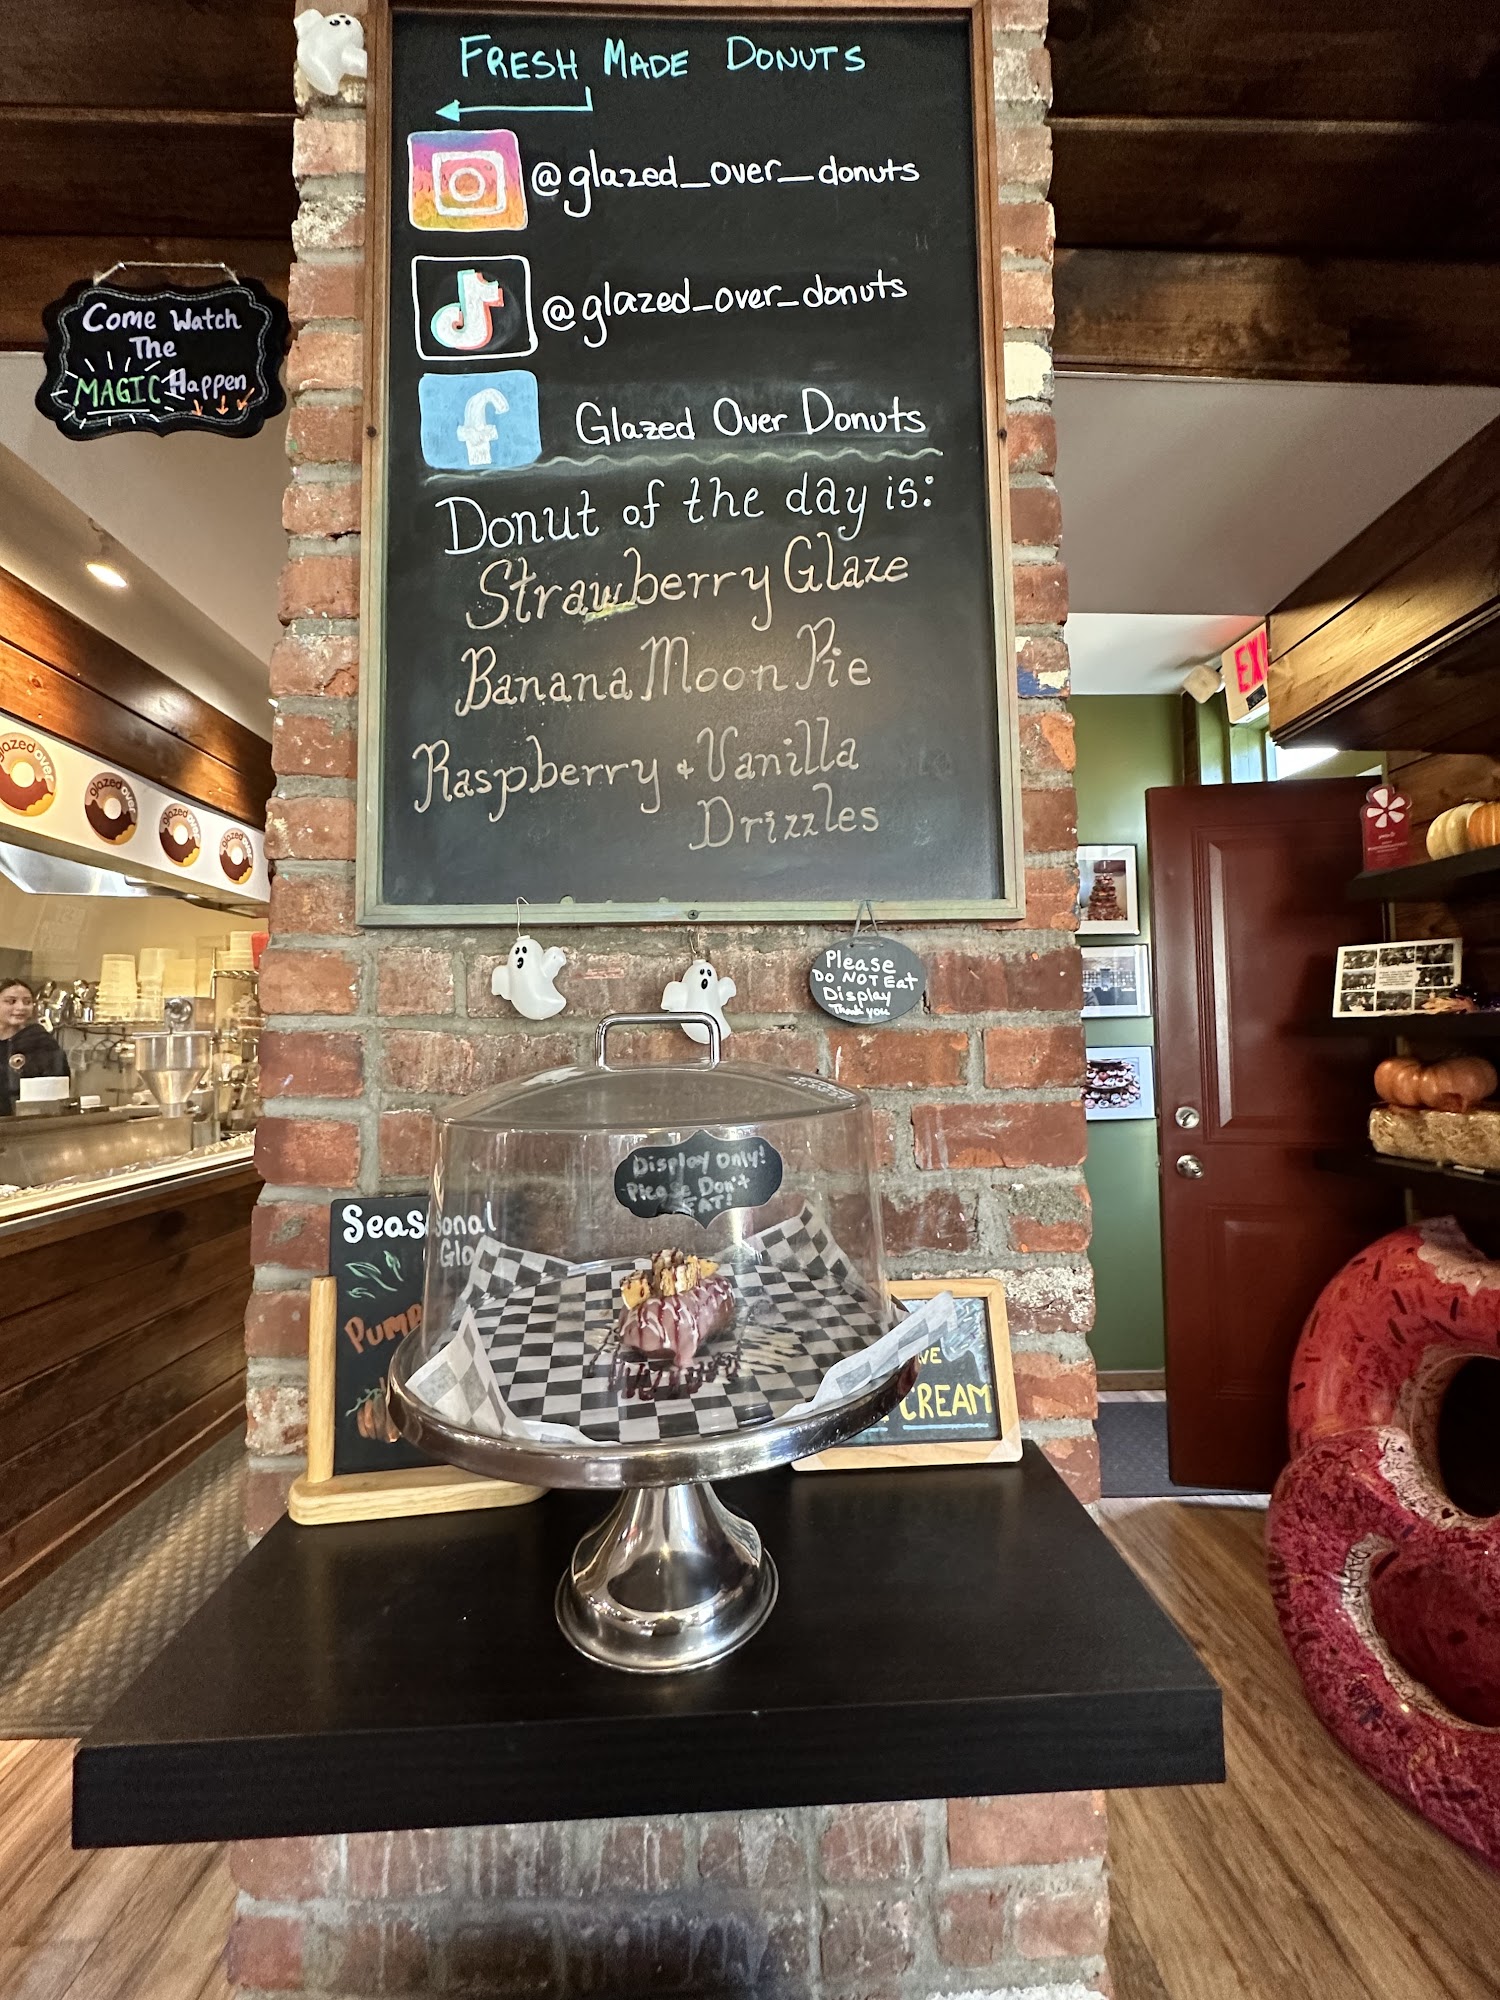 Fresh Made Donuts
@glazed_over_donuts
@glazed_over_donuts
f Glazed Over Donuts
Donut of the day is:
Strawberry Glaze
Banana Moon Pie
Raspberry + Vanilla
Drizzles
Come Watch
The
MAGIC Happen
glazed over
glazed over
glazed over
glazed over
EXI
Please
Do NOT Eat
Display
Thank you
Display Only!
Please Don't
EAT!
Seasonal
CREAM